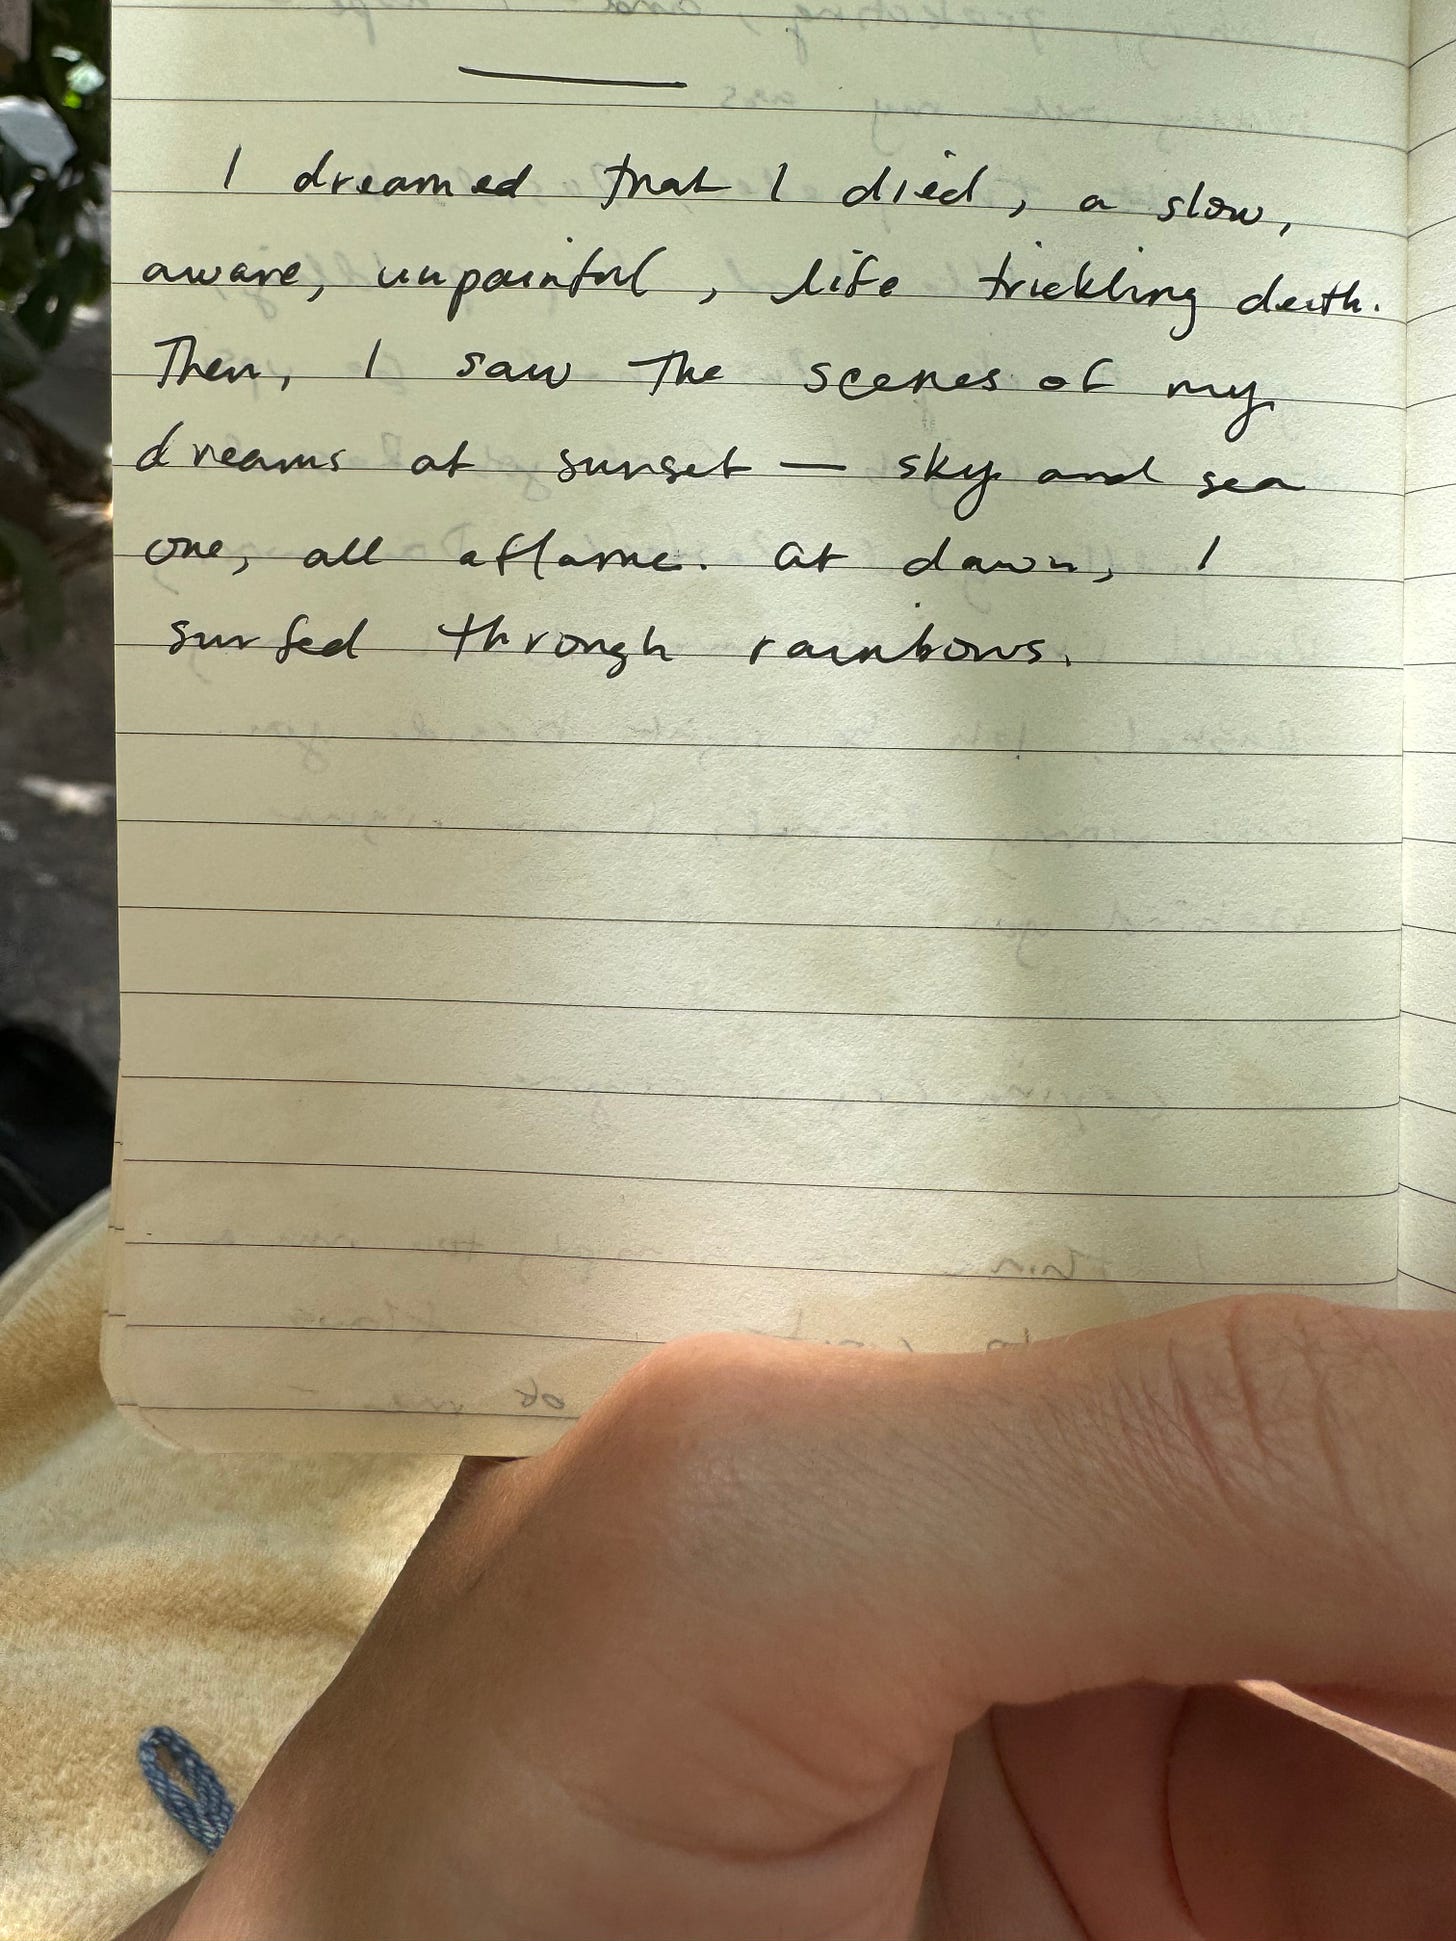 I dreamed that I died, a slow,
aware, unpainful, life trickling death.
Then, I saw the scenes of my
dreams at sunset — sky and sea
one, all aflame. At dawn, I
surfed through rainbows.